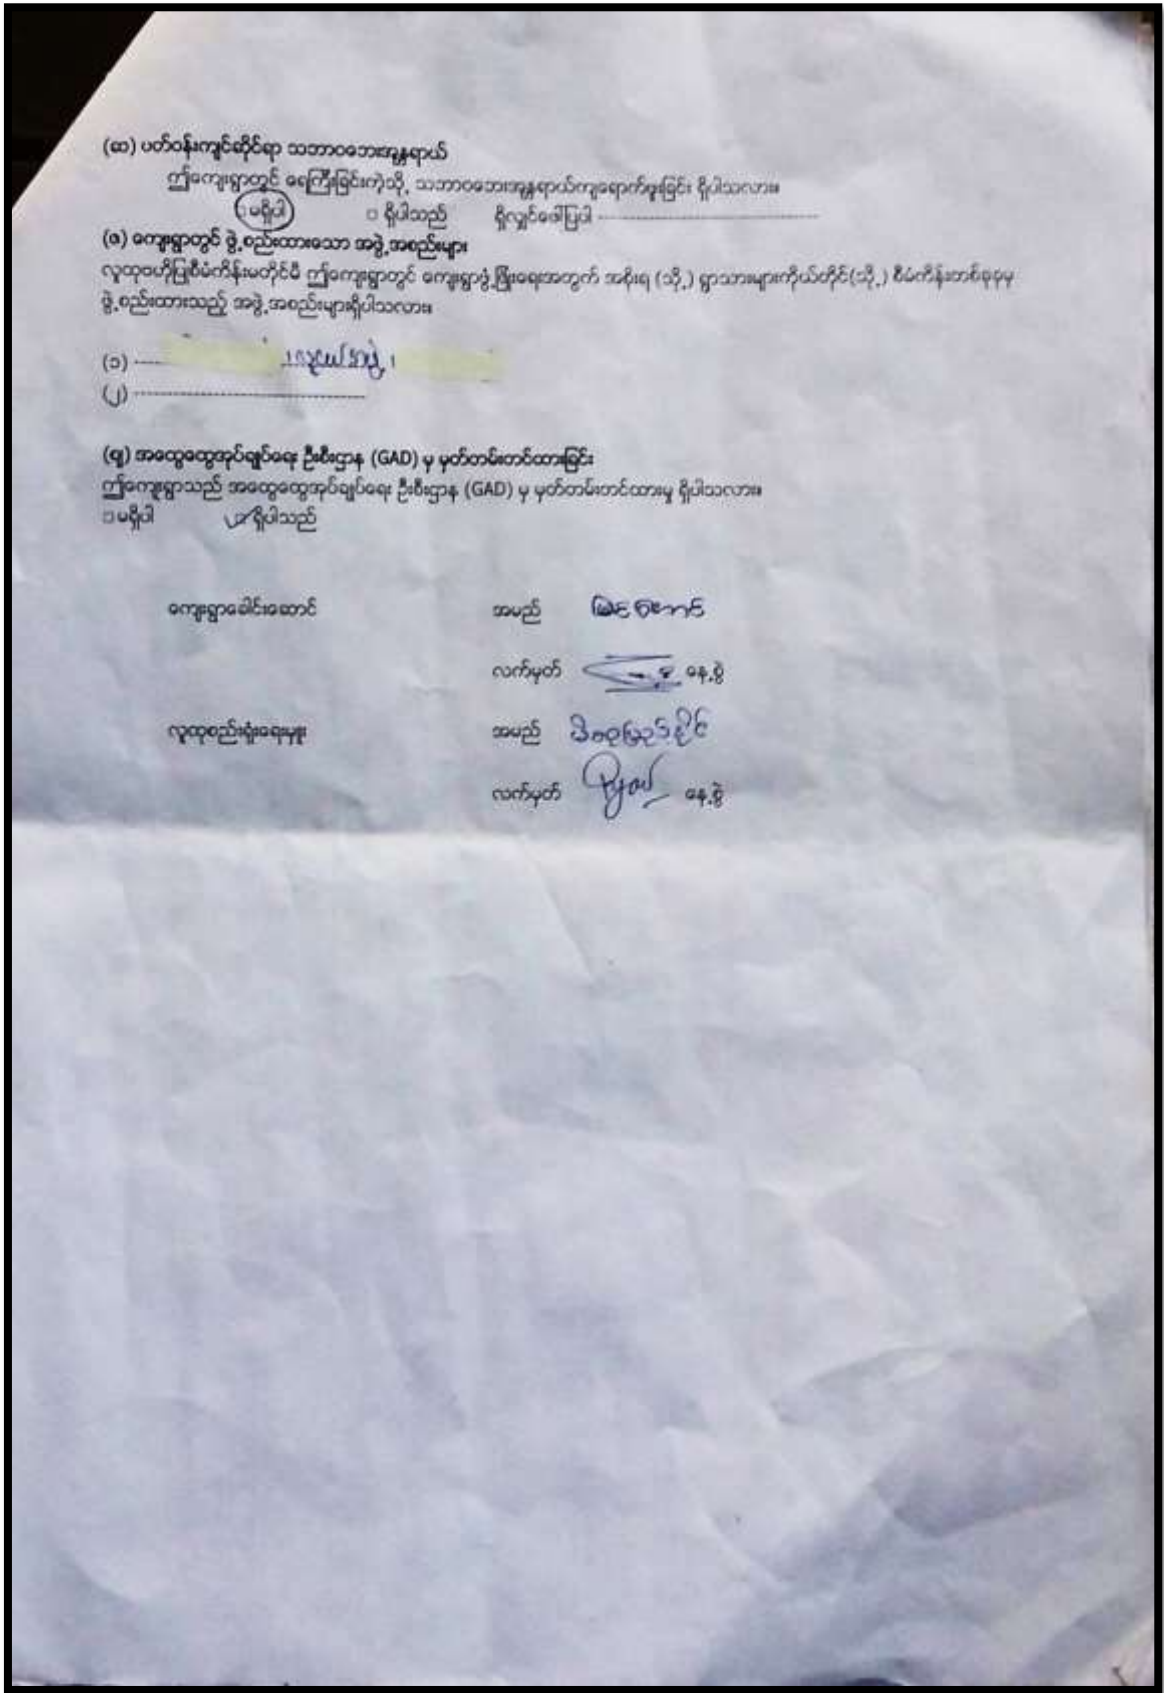 (ဆ) ပတ်ဝန်းကျင်ဆိုင်ရာ သဘာဝဘေးအန္တရာယ်
ဤကျေးရွာတွင် ရေကြီးခြင်းကဲ့သို့ သဘာဝဘေးအန္တရာယ်ကျရောက်ဖူးခြင်း ရှိပါသလား။
□ မရှိပါ □ ရှိပါသည် ရှိလျှင်ဖေါ်ပြပါ ----------------------------
(ဇ) ကျေးရွာတွင် ဖွဲ့စည်းထားသော အဖွဲ့အစည်းများ
လူထုဗဟိုပြုစီမံကိန်းမတိုင်မီ ဤကျေးရွာတွင် ကျေးရွာဖွံ့ဖြိုးရေးအတွက် အစိုးရ (သို့) ရွာသားများကိုယ်တိုင်(သို့) စီမံကိန်းတစ်ခုခုမှ
ဖွဲ့စည်းထားသည့် အဖွဲ့အစည်းများရှိပါသလား။
(၁) ---- လူငယ်အဖွဲ့၊
(၂) ----------------------------
(ဈ) အထွေထွေအုပ်ချုပ်ရေး ဦးစီးဌာန (GAD) မှ မှတ်တမ်းတင်ထားခြင်း
ဤကျေးရွာသည် အထွေထွေအုပ်ချုပ်ရေး ဦးစီးဌာန (GAD) မှ မှတ်တမ်းတင်ထားမှု ရှိပါသလား။
□ မရှိပါ □ ရှိပါသည်
ကျေးရွာခေါင်းဆောင် အမည်
လက်မှတ် နေ့စွဲ
လူထုစည်းရုံးရေးမှူး အမည်
လက်မှတ် နေ့စွဲ